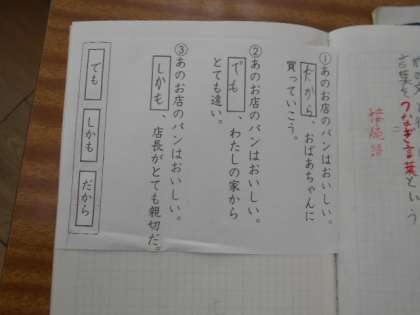 文と
言葉を つなぎ言葉という
接続語
①あのお店のパンはおいしい。
だから、おばあちゃんに
買っていこう。
②あのお店のパンはおいしい。
でも、わたしの家から
とても遠い。
③あのお店のパンはおいしい。
しかも、店長がとても親切だ。
でも しかも だから